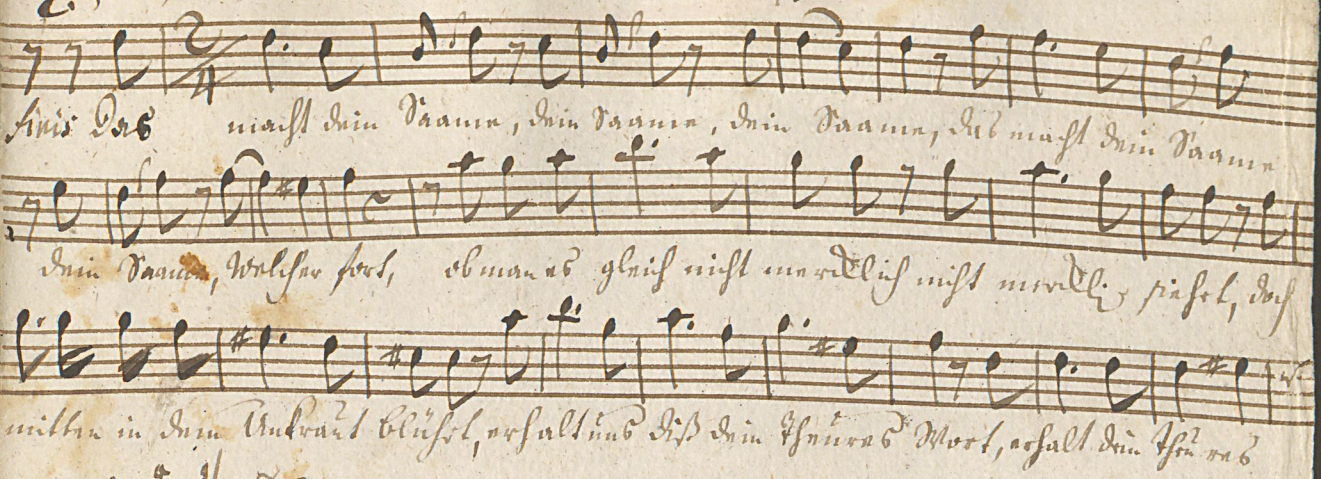 finis Das macht dein Saame, dein Saame, dein Saame, das macht dein Saame
dein Saame, welcher fort, ob man es gleich nicht mercklich nicht merckli siehet, doch
mitten in dem Unkraut blühet, erhalt uns diß dein theures Wort, erhalt dein theures